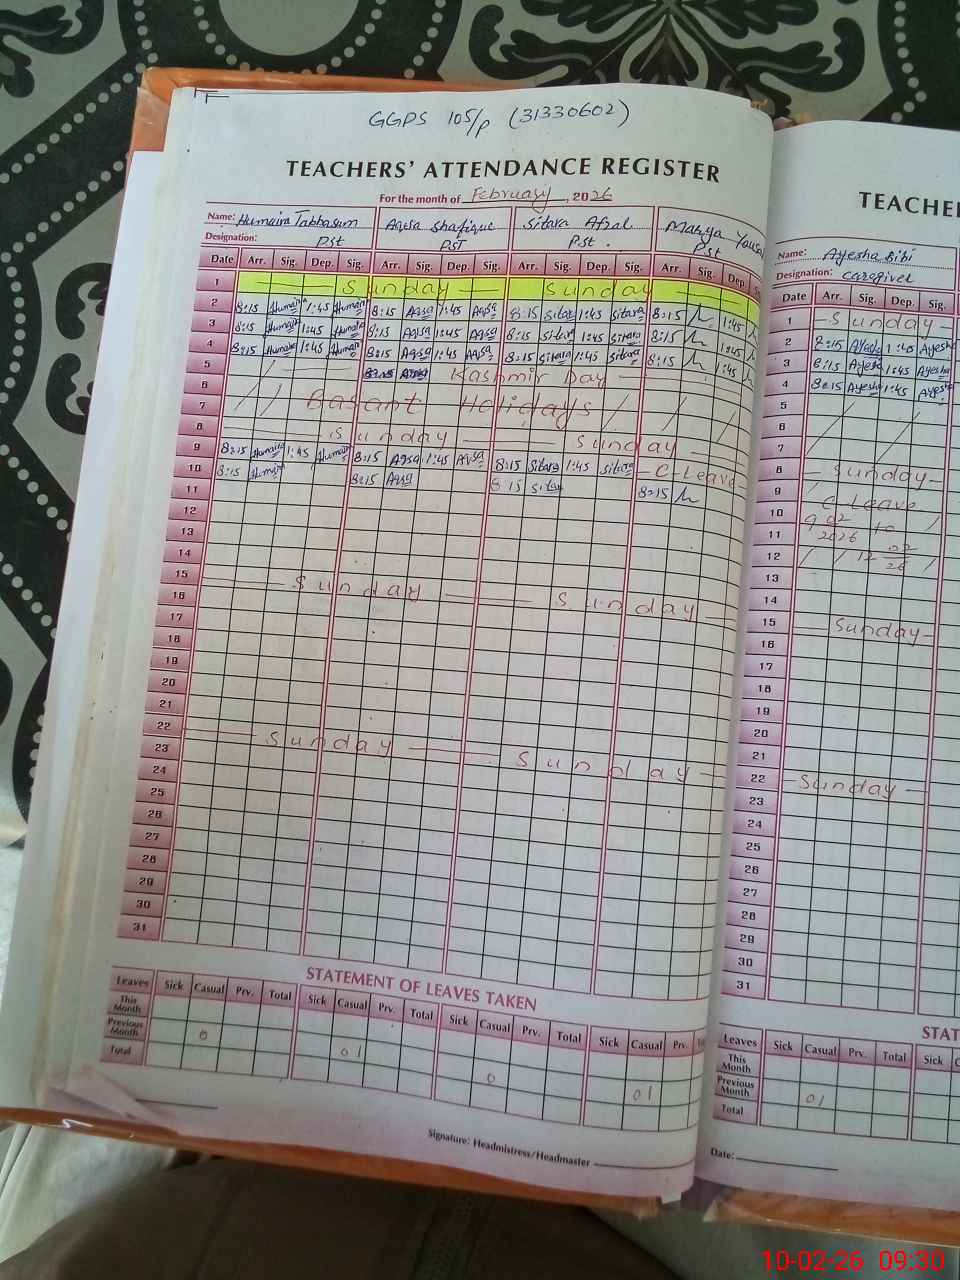 GGPS 105/P (31330602)
TEACHERS' ATTENDANCE REGISTER
For the month of February, 2026
Name: Humaira Tabbasum Aqsa Shafique Sitara Afzal
Designation: PST PST PST. PST
Date Arr. Sig. Dep. Sig. Arr. Sig. Dep. Sig. Arr. Sig. Dep. Sig. Arr. Sig. Dep.
1 Sunday Sunday
2 8:15 Humaira 1:45 Humaira 8:15 Aqsa 1:45 Aqsa 8:15 Sitara 1:45 Sitara 8:15 1:45
3 8:15 Humaira 1:45 Humaira 8:15 Aqsa 1:45 Aqsa 8:15 Sitara 1:45 Sitara 8:15 1:45
4 8:15 Humaira 1:45 Humaira 8:15 Aqsa 1:45 Aqsa 8:15 Sitara 1:45 Sitara 8:15 1:45
5 Kashmir Day
6
7 Basant Holidays
8 Sunday Sunday
9 8:15 Humaira 1:45 Humaira 8:15 Aqsa 1:45 Aqsa 8:15 Sitara 1:45 Sitara C-Leave
10 8:15 Humaira 8:15 Aqsa 8:15 Sitara 8:15
11
12
13
14
15 Sunday Sunday
16
17
18
19
20
21
22 Sunday Sunday
23
24
25
26
27
28
29
30
31
STATEMENT OF LEAVES TAKEN
Leaves Sick Casual Prv. Total Sick Casual Prv. Total Sick Casual Prv. Total Sick Casual Prv.
This Month
Previous Month 0 01 0 01
Total
Signature: Headmistress/Headmaster
TEACHE
Name: Ayesha Bibi
Designation: Caregiver
Date Arr. Sig. Dep. Sig.
1 Sunday
2 8:15 Ayesha 1:45 Ayesha
3 8:15 Ayesha 1:45 Ayesha
4 8:15 Ayesha 1:45 Ayesha
5
6
7
8 Sunday
9 C-Leave
10 9 02 2026 to
11
12 12 02 26
13
14
15 Sunday
16
17
18
19
20
21
22 Sunday
23
24
25
26
27
28
29
30
31
STAT
Leaves Sick Casual Prv. Total Sick
This Month
Previous Month 01
Total
Date:
10-02-26 09:30